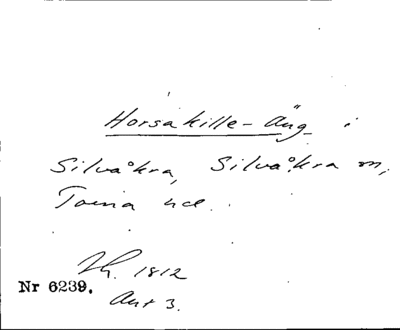 Horsakille-Äng i
Silvåkra, Silvåkra sn,
Torna hd.
1812
Nr 6239.
Akt 3.